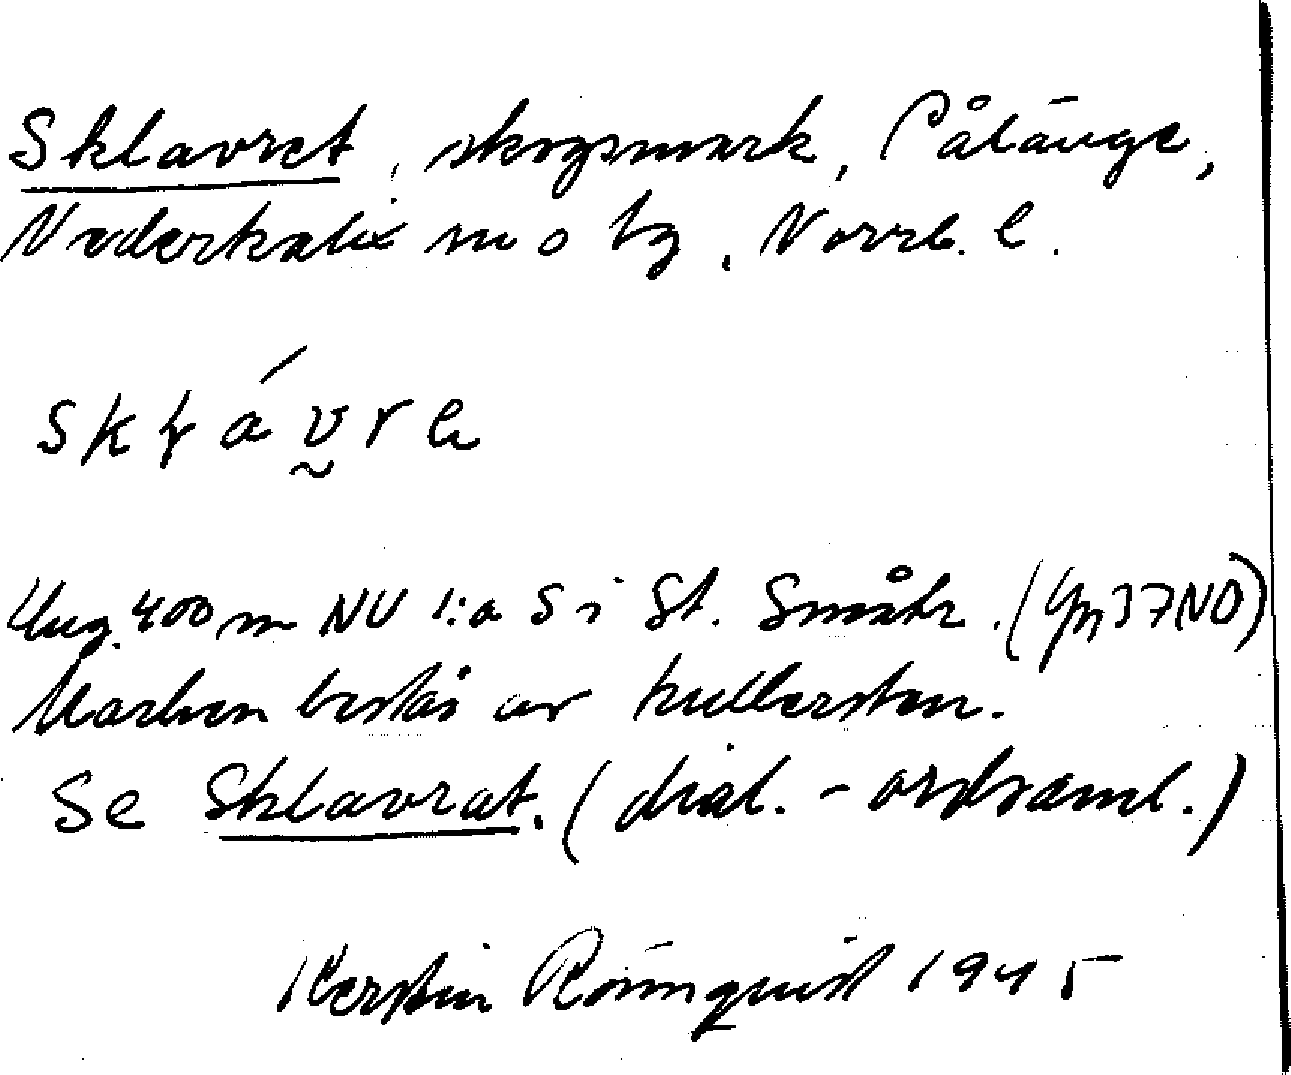 Sklavret, skogsmark, Pålänge,
Nederkalix sn o tg, Norrb. l.
Ung. 400 m NV 1:a S i St. Småtr. (Ym37NO)
Marken består av kullersten.
Se Sklavrat. (dial.-ordsaml.)
Kerstin Rönnquist 1945